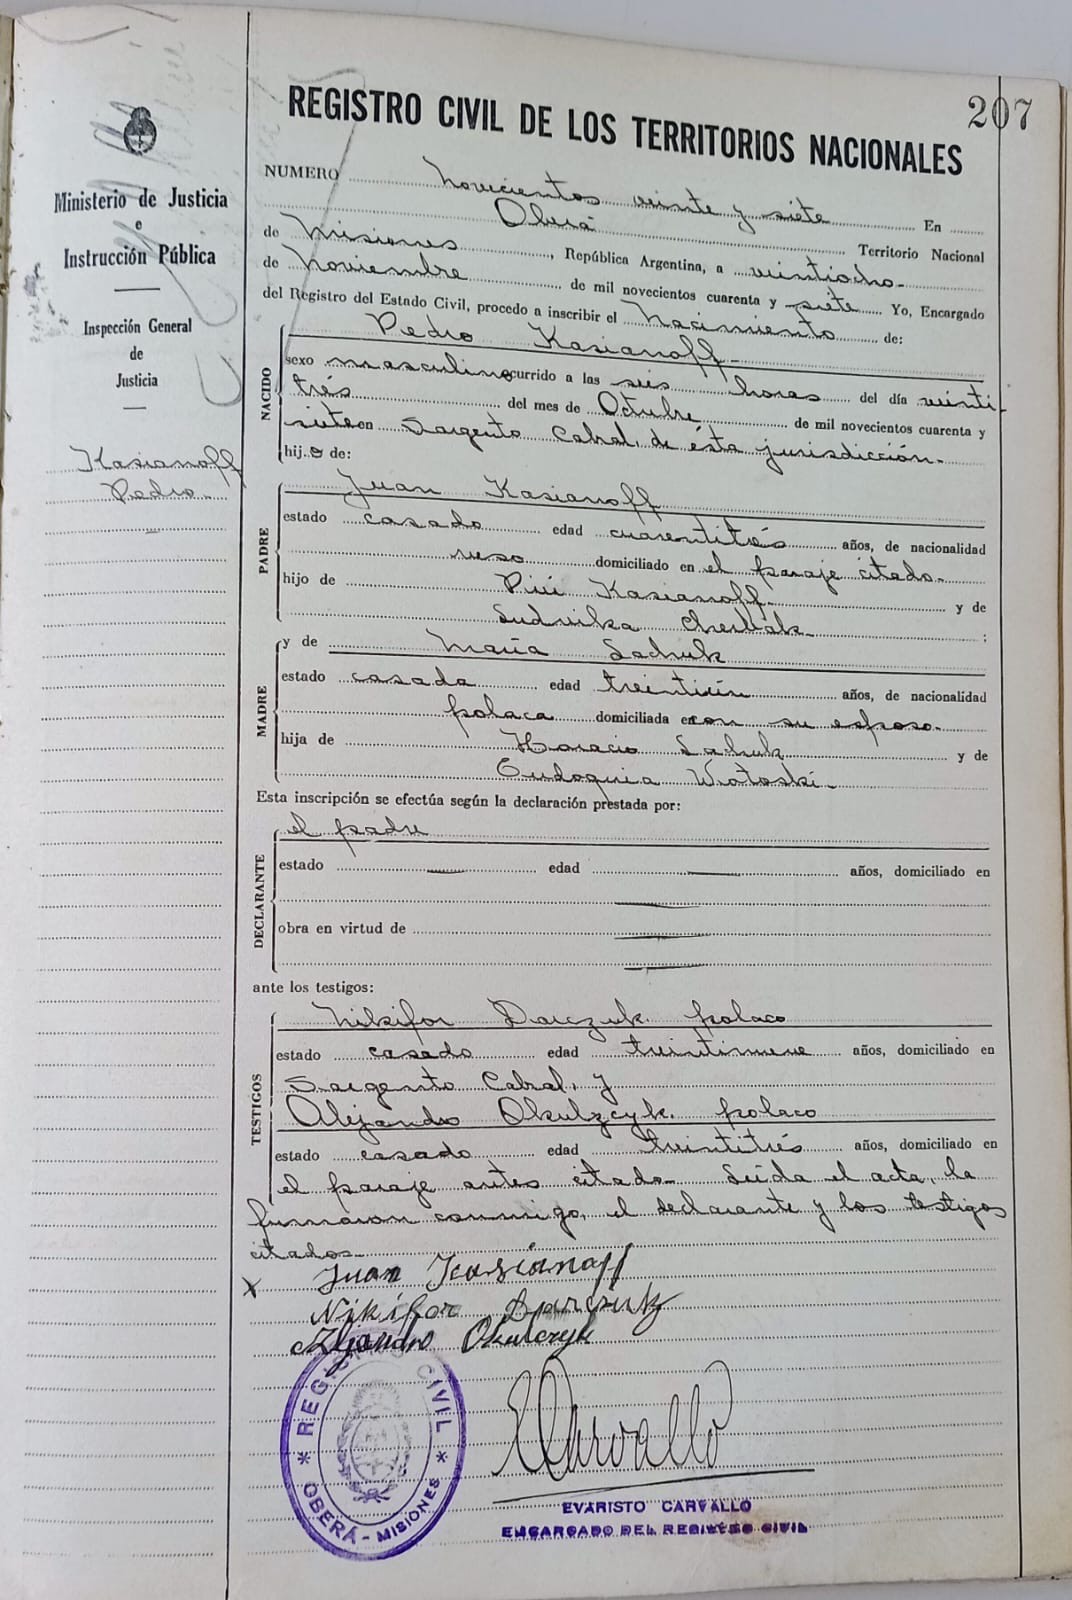 207
REGISTRO CIVIL DE LOS TERRITORIOS NACIONALES
Ministerio de Justicia
e
Instrucción Pública
Inspección General
de
Justicia
Kasianoff
Pedro
NUMERO novecientos veinte y siete En
Oberá Territorio Nacional
de Misiones, República Argentina, a veintiocho
de noviembre de mil novecientos cuarenta y siete Yo, Encargado
del Registro del Estado Civil, procedo a inscribir el nacimiento de:
NACIDO
Pedro Kasianoff
sexo masculino ocurrido a las seis horas del día veinti-
trés del mes de Octubre de mil novecientos cuarenta y
siete en Sargento Cabral, de ésta jurisdicción
hijo de:
PADRE
Juan Kasianoff
estado casado edad cuarentitrés años, de nacionalidad
ruso domiciliado en el paraje citado
hijo de Kasianoff y de
Ludvika ;
MADRE
y de María
estado casada edad treintiún años, de nacionalidad
polaca domiciliada en con su esposo
hija de Horacio y de
Eudoquia
Esta inscripción se efectúa según la declaración prestada por:
DECLARANTE
el padre
estado edad años, domiciliado en
obra en virtud de
ante los testigos:
TESTIGOS
Nikifor Darczuk polaco
estado casado edad treintinueve años, domiciliado en
Sargento Cabral, y
Alejandro Okulzcyk. polaco
estado casado edad treintitrés años, domiciliado en
el paraje antes citado Leída el acta, la
firmaron conmigo, el declarante y los testigos
citados
X Juan Kasianoff
Nikifor Darczuk
Alejandro Okulczyk
REGISTRO CIVIL
OBERÁ - MISIONES
ECarvallo
EVARISTO CARVALLO
ENCARGADO DEL REGISTRO CIVIL